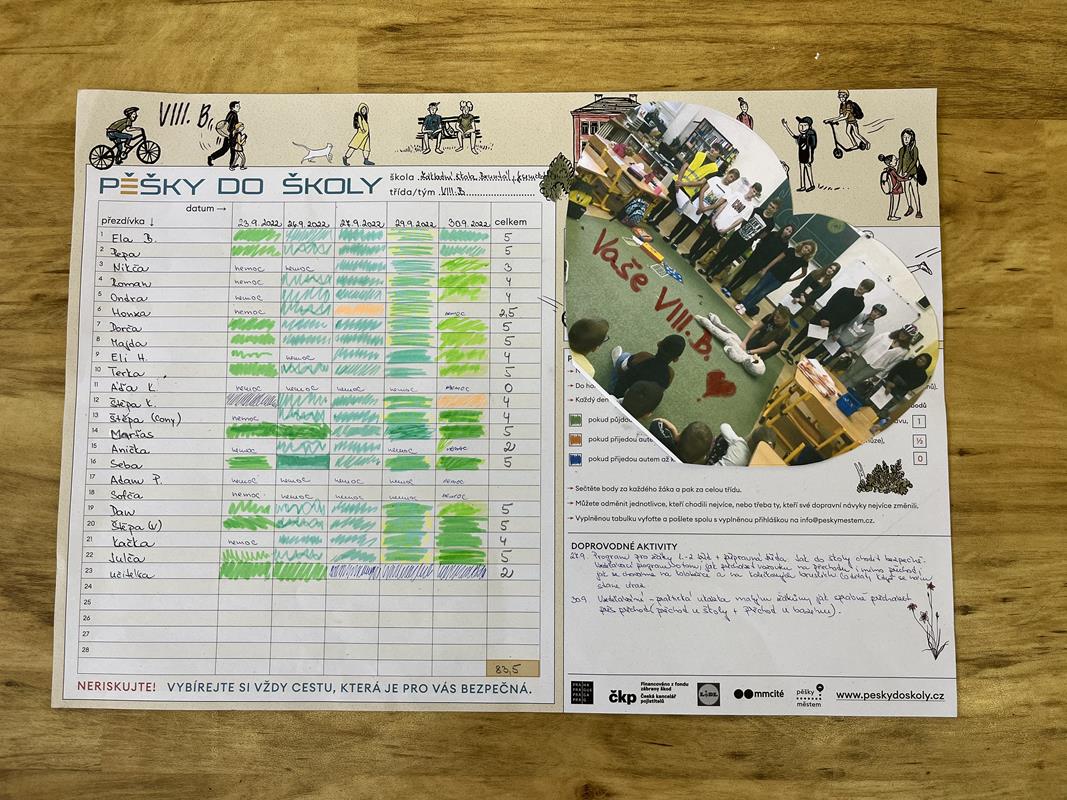 VIII. B.
PĚŠKY DO ŠKOLY
škola Základní škola Bruntál,
třída/tým VIII. B
datum →
přezdívka ↓ 23.9.2022 26.9.2022 27.9.2022 29.9.2022 30.9.2022 celkem
1 Ela B. 5
2 Pepa 5
3 Nikča nemoc nemoc 3
4 Roman nemoc 4
5 Ondra nemoc 4
6 Honza nemoc nemoc 2,5
7 Dorča 5
8 Majda 5
9 Eli H. nemoc 4
10 Terka 5
11 Áďa K. nemoc nemoc nemoc nemoc nemoc 0
12 Štěpa K. 4
13 Štěpa (Cony) nemoc 4
14 5
15 Anička nemoc nemoc nemoc 2
16 Seba 5
17 Adam P. nemoc nemoc nemoc nemoc nemoc
18 Sofča nemoc nemoc nemoc nemoc nemoc
19 5
20 Štěpa 5
21 Kačka nemoc 4
22 Julča 5
23 učitelka 2
24
25
26
27
28
83,5
NERISKUJTE! VYBÍREJTE SI VŽDY CESTU, KTERÁ JE PRO VÁS BEZPEČNÁ.
Vaše VIII. B.
→ Do ho
→ Každý den
pokud půjdo 1
pokud přijedou aute ½
pokud přijedou autem až 0
→ Sečtěte body za každého žáka a pak za celou třídu.
→ Můžete odměnit jednotlivce, kteří chodili nejvíce, nebo třeba ty, kteří své dopravní návyky nejvíce změnili.
→ Vyplněnou tabulku vyfoťte a pošlete spolu s vyplněnou přihláškou na info@peskymestem.cz.
DOPROVODNÉ AKTIVITY
27.9. Program pro žáky 1.-2. tříd + přípravná třída Jak do školy chodit bezpečně.
Vzdělávací program o tom, jak přecházet vozovku na přechodu i mimo přechod,
jak se chováme na koloběžce a na kolečkových bruslích, co dělat, když se nám
stane úraz.
30.9. Vzdělávání - praktická ukázka malým žákům jak správně přecházet
přes přechod (přechod u školy + přechod u bazénu).
PRA HA
PRA GUE
PRA GA
PRA G
čkp
Financováno z fondu
zábrany škod
Česká kancelář
pojistitelů
LIDL
mmcité
pěšky
městem
www.peskydoskoly.cz